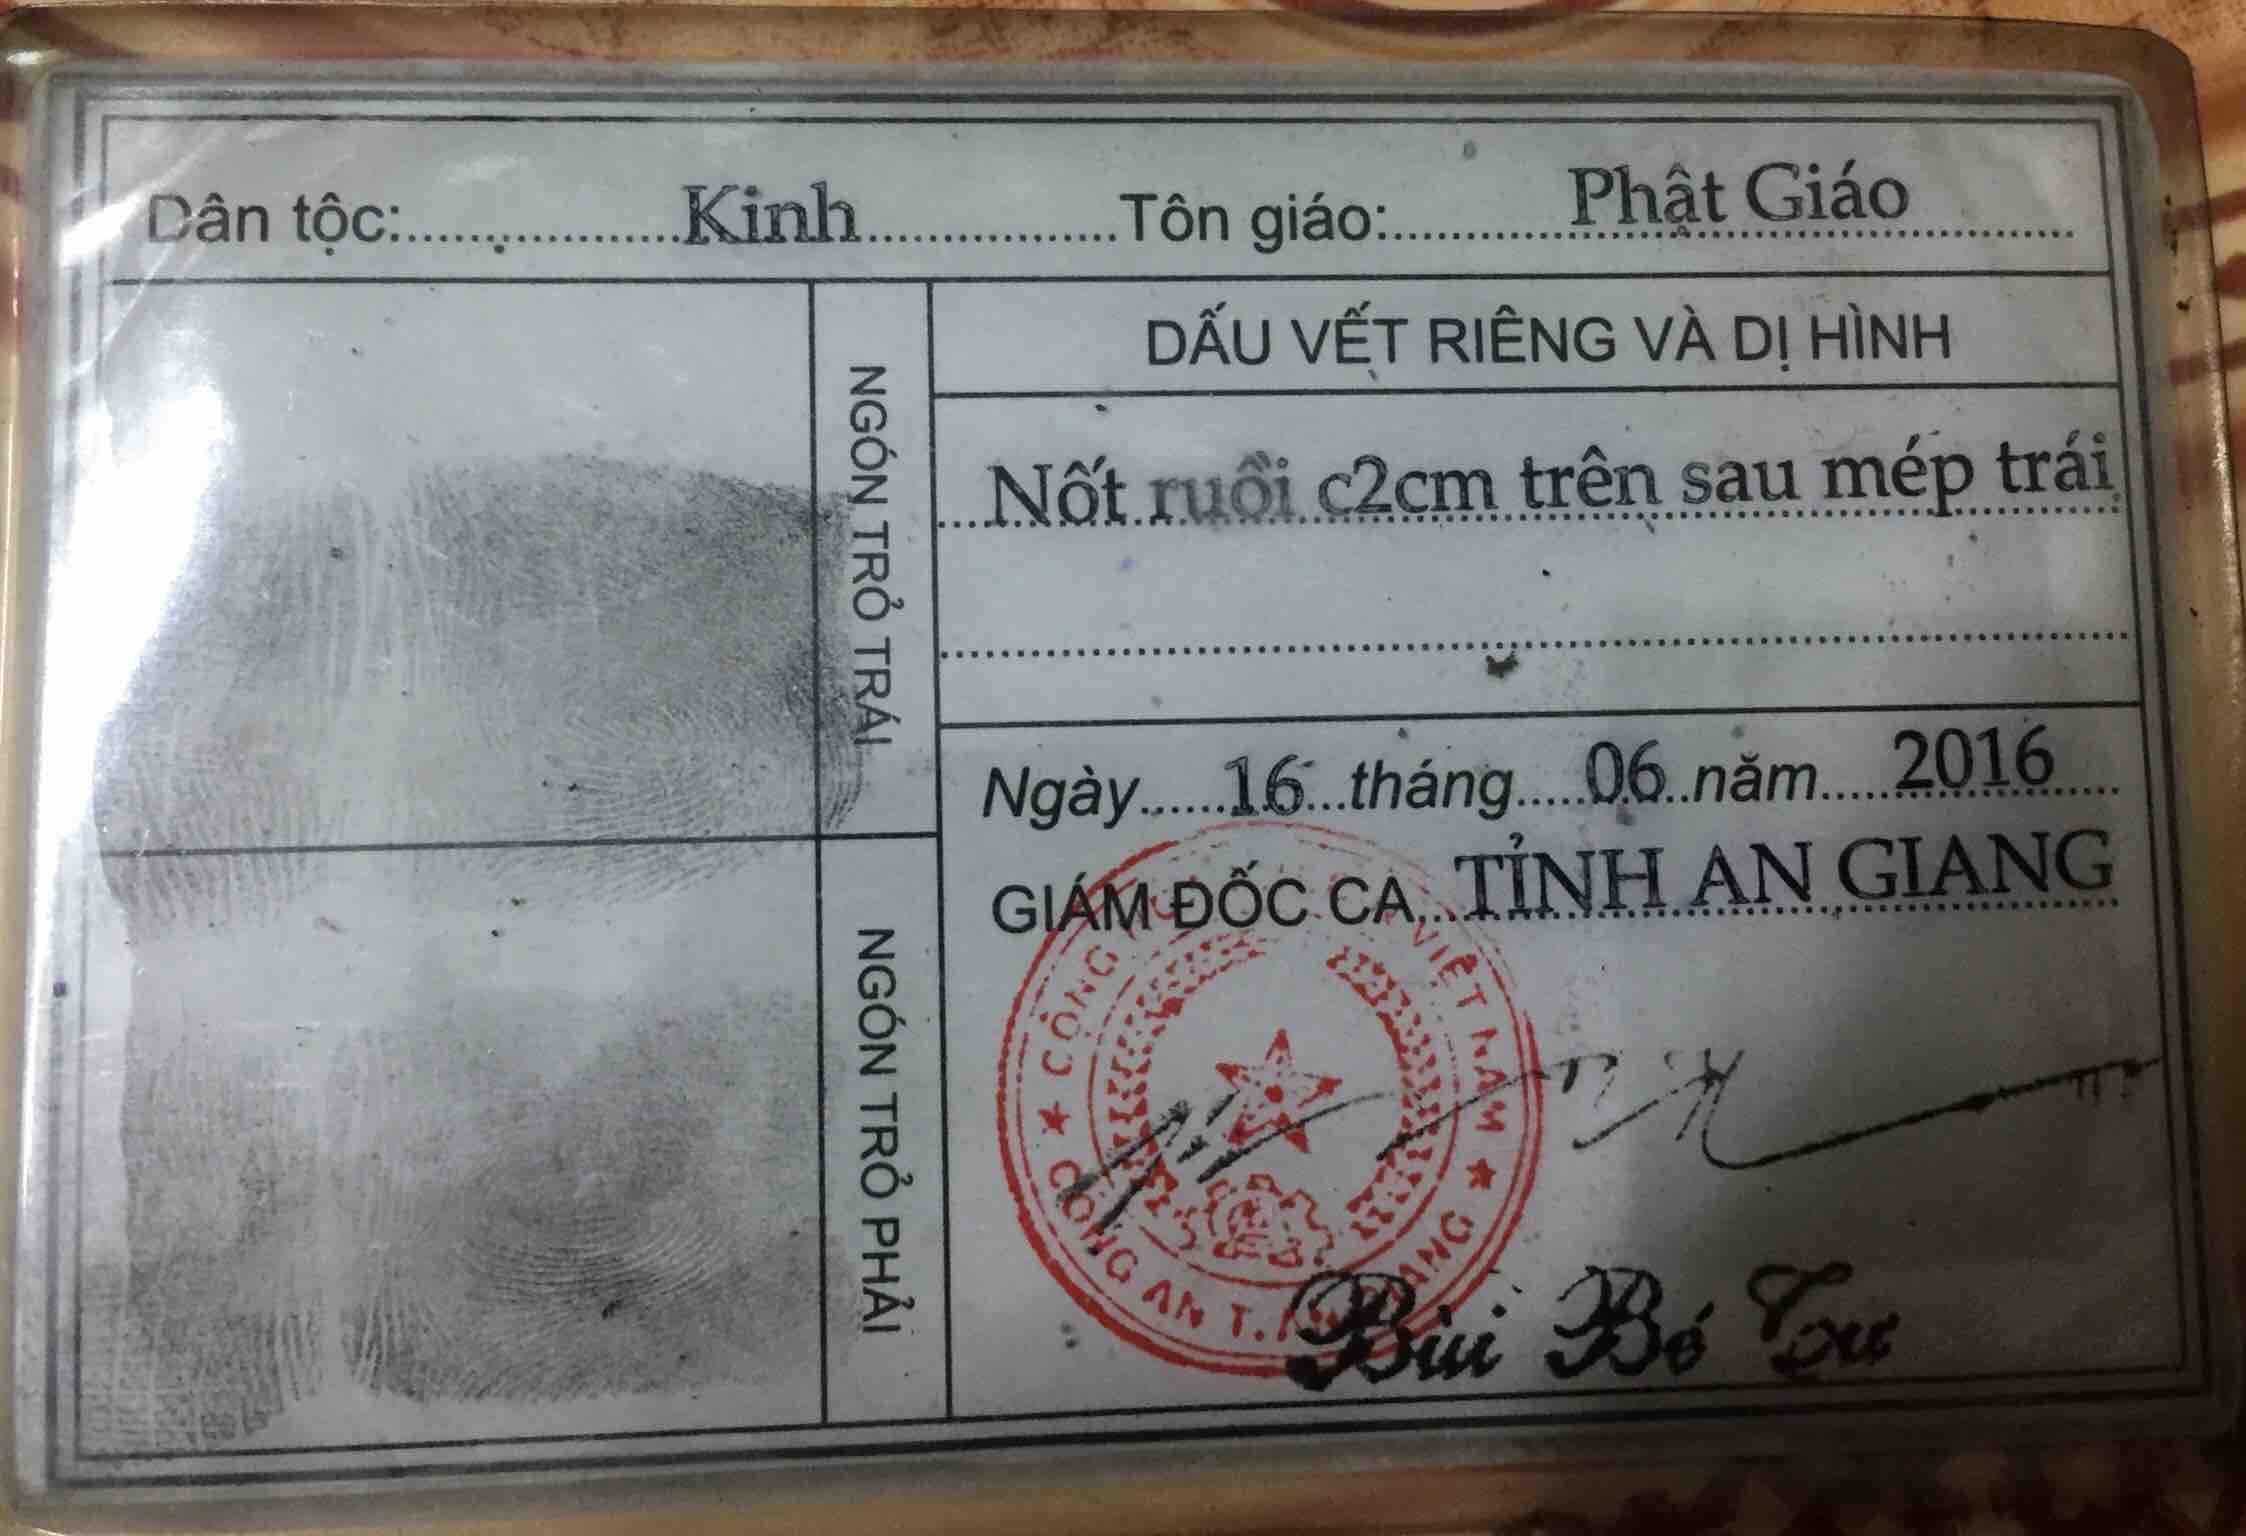 Dân tộc: Kinh Tôn giáo: Phật Giáo
NGÓN TRỎ TRÁI
NGÓN TRỎ PHẢI
DẤU VẾT RIÊNG VÀ DỊ HÌNH
Nốt ruồi c2cm trên sau mép trái
Ngày 16 tháng 06 năm 2016
GIÁM ĐỐC CA TỈNH AN GIANG
CỘNG VIỆT NAM
CÔNG AN T. AN GIANG
Bùi Bé Tư